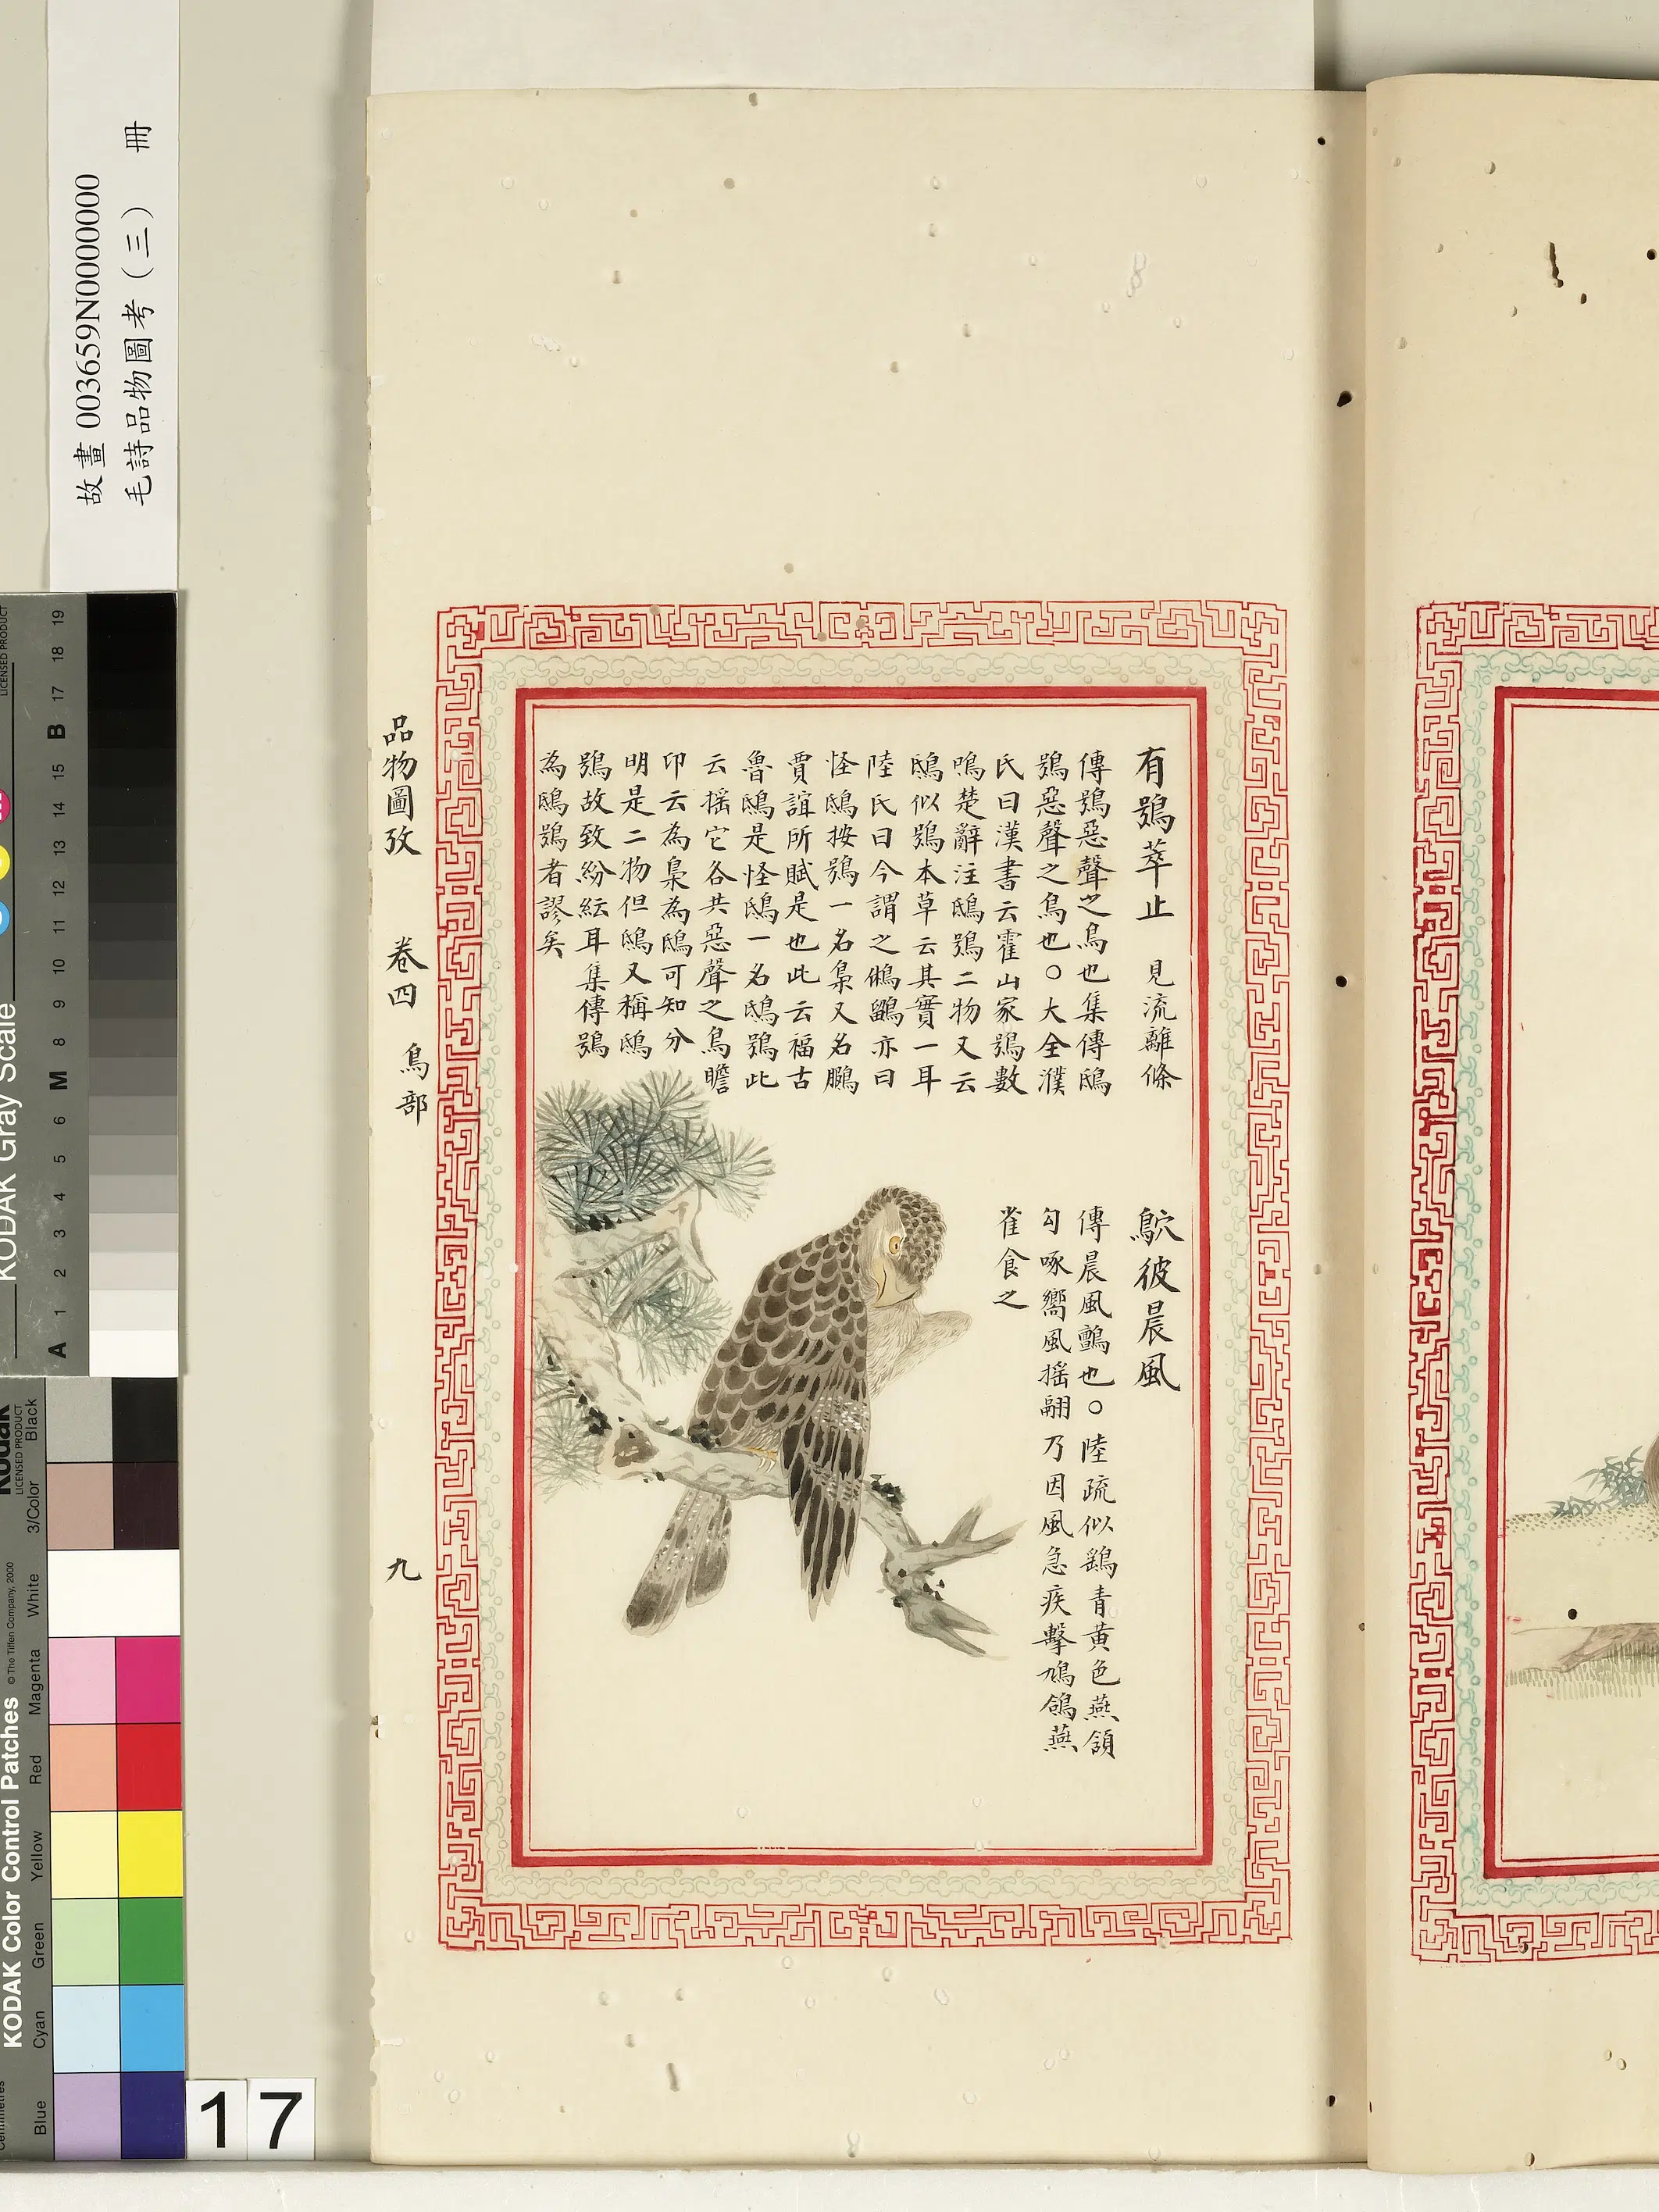 故畫 003659N000000
毛詩品物圖考（三） 冊
有鴞萃止 見流離條
傳鴞惡聲之鳥也集傳鴟
鴞惡聲之鳥也○大全濮
氏曰漢書云霍山家鴞數
鳴楚辭注鴟鴞二物又云
鴟似鴞本草云其實一耳
陸氏曰今謂之鵂鶹亦曰
怪鴟按鴞一名梟又名鵩
賈誼所賦是也此云福古
魯鴟是怪鴟一名鴟鴞此
云搖它各共惡聲之鳥瞻
卬云為梟為鴟可知分
明是二物但鴟又稱鴟
鴞故致紛紜耳集傳鴞
為鴟鴞者謬矣
鴥彼晨風
傳晨風鸇也○陸疏似鷂青黃色燕頷
勾啄嚮風搖翮乃因風急疾擊鳩鴿燕
雀食之
品物圖攷 卷四 鳥部 九
KODAK Gray Scale
LICENSED PRODUCT
A 1 2 3 4 5 6 M 8 9 10 11 12 13 14 15 B 17 18 19
KODAK Color Control Patches
© The Tiffen Company, 2000
Kodak
LICENSED PRODUCT
Blue Cyan Green Yellow Red Magenta White 3/Color Black
17